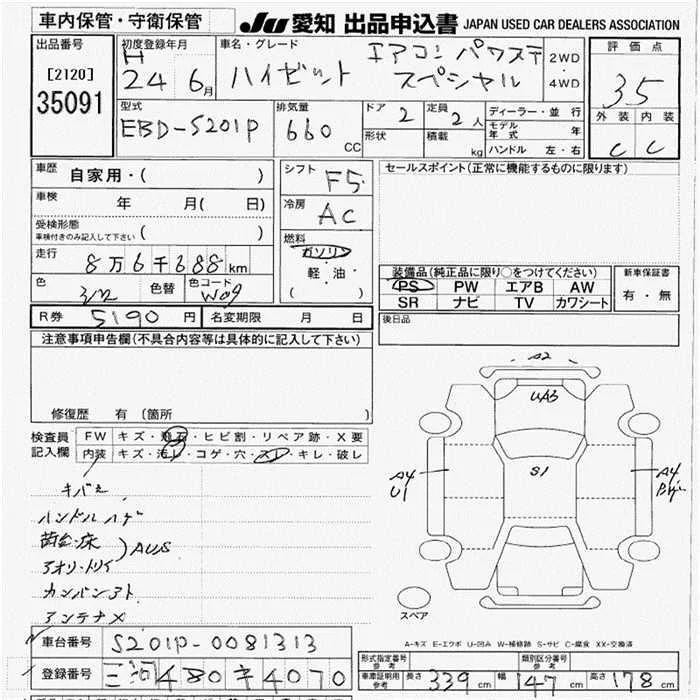 車内保管・守衛保管
JU 愛知 出品申込書 JAPAN USED CAR DEALERS ASSOCIATION
出品番号
[2120]
35091
初度登録年月
H
24 6月
車名・グレード
エアコン パワステ
ハイゼット スペシャル
2WD
・
4WD
評価点
3.5
外装 内装
C C
型式
EBD-S201P
排気量
660 CC
ドア 2
形状
定員 2人
積載 kg
ディーラー・並行
モデル年式 年
ハンドル 左・右
車歴 自家用・( )
車検 年 月( 日)
受検形態
車検付きのみ記入して下さい ( )
走行 8万6千688km
色 色替
色コード W09
シフト F5
冷房 AC
燃料
ガソリン
・
軽・油・
( )
セールスポイント(正常に機能するものに限ります)
装備品(純正品に限り○をつけてください)
PS PW エアB AW
SR ナビ TV カワシート
新車保証書
有・無
R券 5190円 名変期限 月 日
後日品
注意事項申告欄(不具合内容等は具体的に記入して下さい)
修復歴 有 (箇所 )
検査員
記入欄
FW キズ・飛石・ヒビ割・リペア跡・X要
内装 キズ・汚レ・コゲ・穴・スレ・キレ・破レ
ハンドルハゲ
荷台・床
アオリ・トリイ
AUS
アンテナX
A2
UA3
S1
A4
U1
A4
スペア
A-キズ E-エクボ U-凹み W-補修跡 S-サビ C-腐食 XX-交換済
車台番号 S201P-0081313
登録番号 三河480キ4070
形式指定番号
参考
類別区分番号
参考
車庫証明用
参考
長さ 339cm 幅 147cm 高さ 178cm